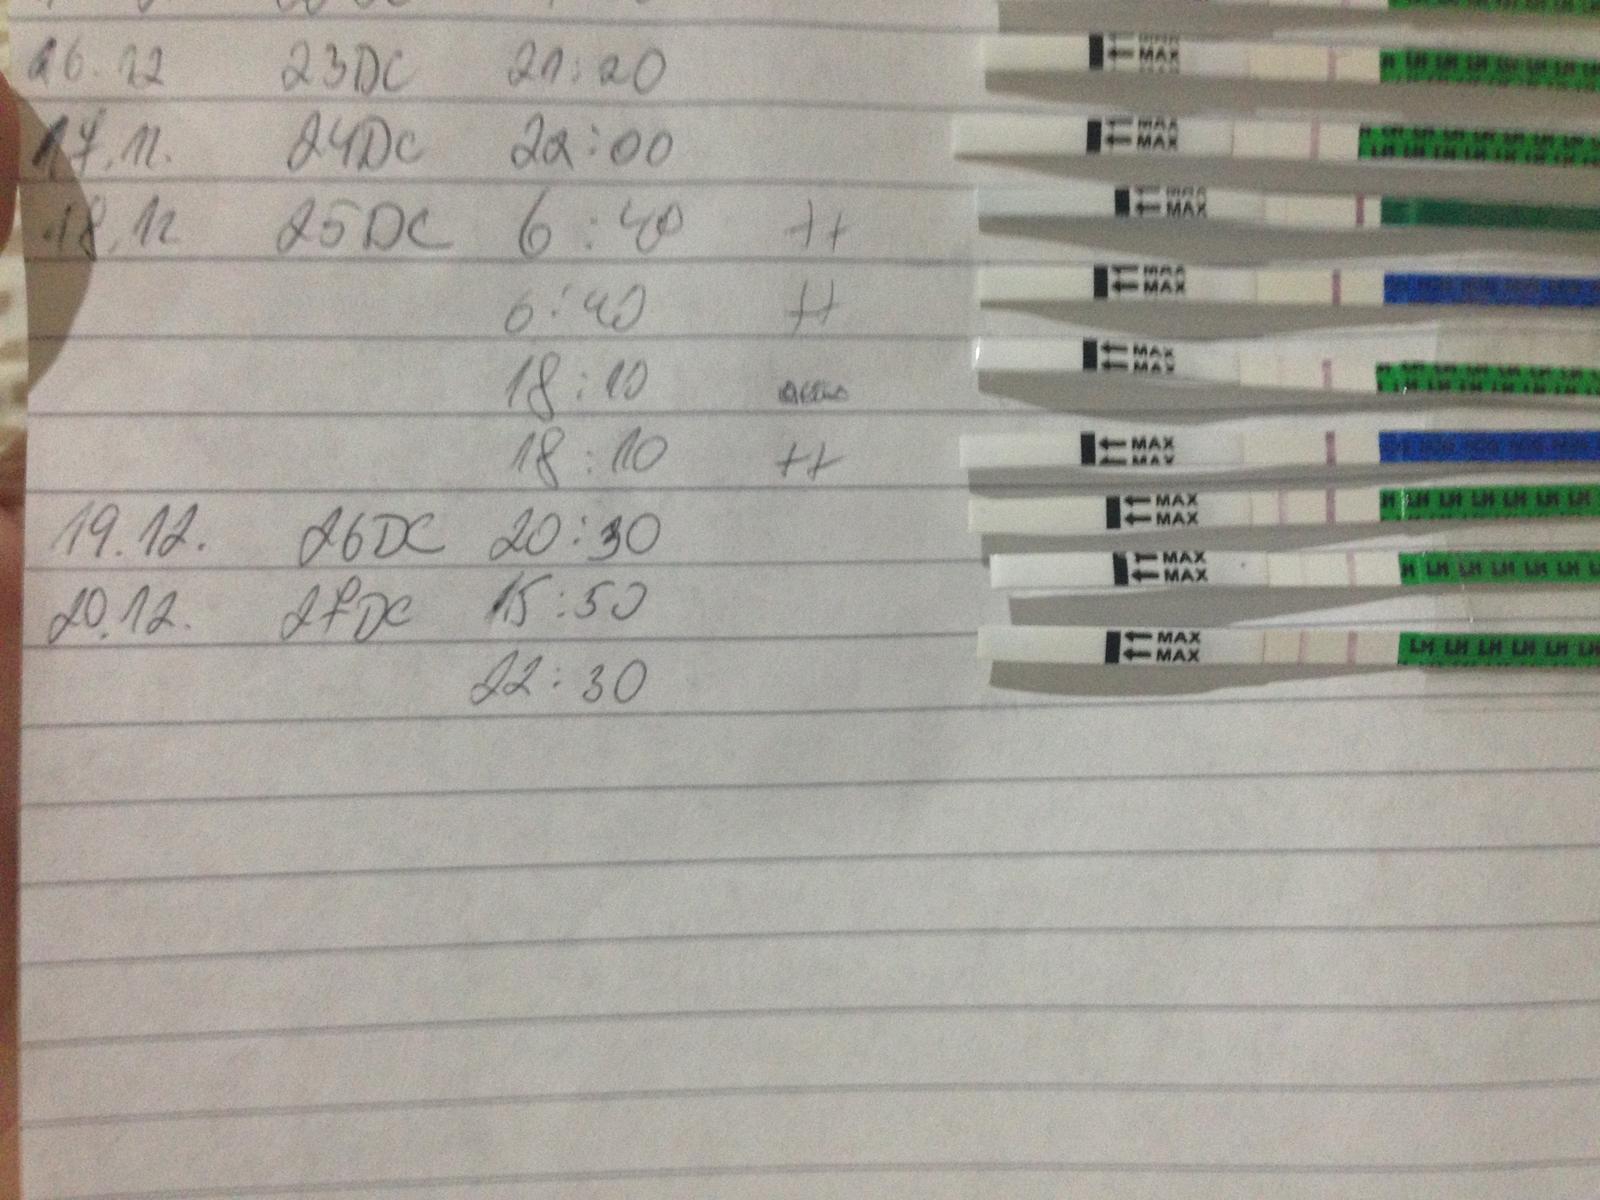 16.12 23DC 21:20 MAX MAX LH LH LH LH LH LH
17.11. 24DC 22:00 MAX MAX LH LH LH LH LH LH
18.12 25DC 6:40 ++ MAX MAX
6:40 ++ MAX MAX
18:10 MAX MAX LH LH LH LH LH LH
18:10 ++ MAX MAX
19.12. 26DC 20:30 MAX MAX LH LH LH LH LH LH
20.12. 27DC 15:50 MAX MAX LH LH LH LH LH
22:30 MAX MAX LH LH LH LH LH LH